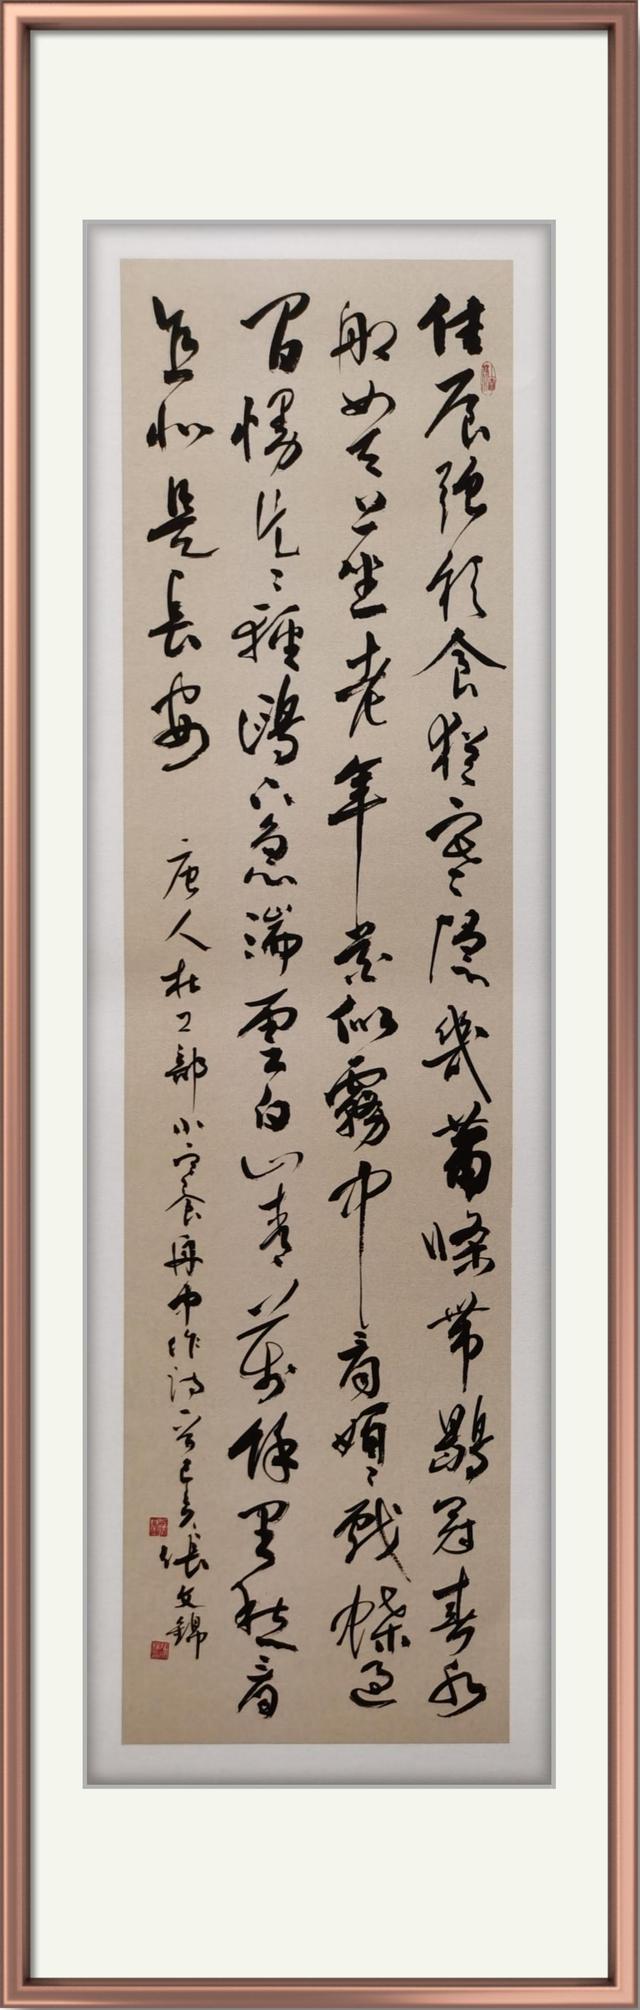 佳辰強飲食猶寒隱幾蕭條帶鶡冠春水
船如天上坐老年花似霧中看娟〻戲蝶過
閒幔片〻輕鷗下急湍雲白山青萬餘里愁看
直北是長安
唐人杜工部小寒食舟中作詩一首己亥張文錦